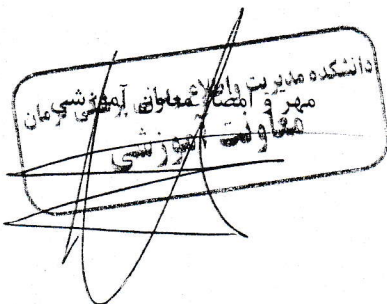 دانشکده مدیریت و اطلاع پزشکی کرمان
مهر و امضا معاون آموزشی
معاونت آموزشی